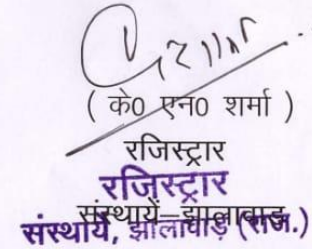 ( के0 एन0 शर्मा )
रजिस्ट्रार
रजिस्ट्रार
संस्थायें–झालावाड़
संस्थायें, झालावाड़ (राज.)